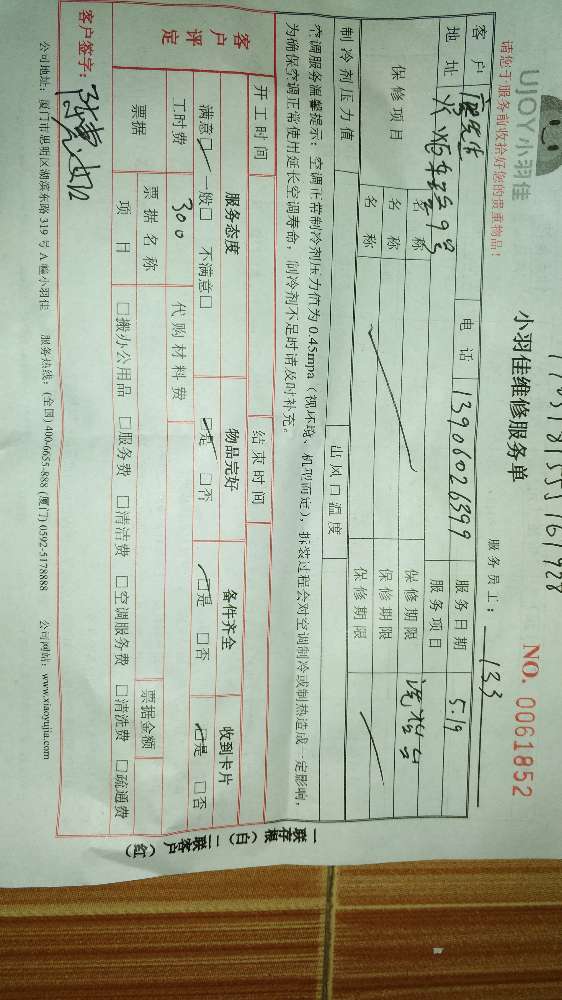 UJOY小羽佳
小羽佳维修服务单
NO. 0061852
请您于服务前收拾好您的贵重物品!
服务员工: 133
客户 电话 13906026399 服务日期 5.19
地址 9号 服务项目
保修项目 名称 保修期限
名称 保修期限
名称 保修期限
制冷剂压力值 出风口温度
空调服务温馨提示: 空调正常制冷剂压力值为 0.45mpa (视环境、机型而定), 拆装过程会对空调制冷或制热造成一定影响,
为确保空调正常使用延长空调寿命, 制冷剂不足时请及时补充。
开工时间 结束时间
客户评定 服务态度 物品完好 备件齐全 收到卡片
满意☑ 一般□ 不满意□ ☑是 □否 ☑是 □否 ☑是 □否
工时费 300 代购材料费
票据 票据名称 票据金额
项目 □搬办公用品 □服务费 □清洁费 □空调服务费 □清洗费 □疏通费
客户签字:
公司地址: 厦门市思明区湖滨东路 319 号 A 幢小羽佳 服务热线: (全国) 400-6655-888 (厦门) 0592-5178888 公司网站: www.xiaoyujia.com
一联存根(白) 二联客户(红)